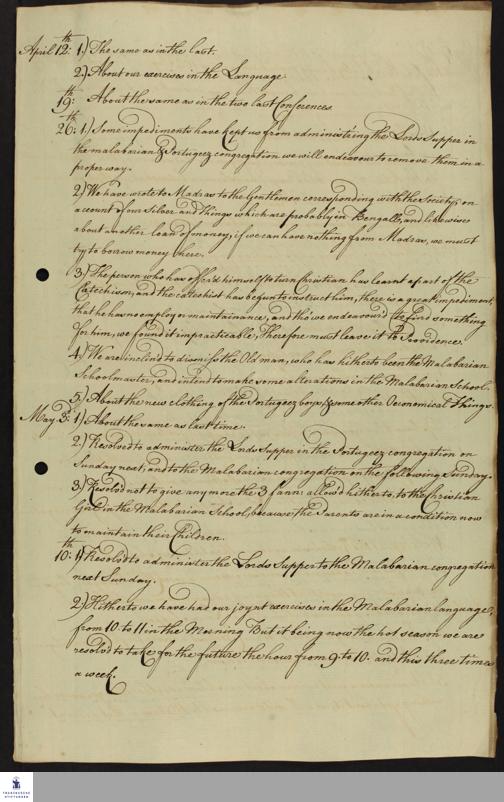 April 12.th 1.) The same as in the last.
2.) About our exercises in the Language.
19.th: About the same as in the two last Conferences.
26.th: 1.) Some impediments have kept us from administ'ring the Lords Supper in
the malabarian & Portugeez congregation we will endeavour to remove them in a
proper way.
2.) We have wrote to Madras to the Gentlemen corresponding with the Society, on
account of our Silver and things which are probably in Bengall, and likewise
about another loan of money; if we can have nothing from Madras, we must
try to borrow money here.
3.) The person who has offer'd himself to turn Christian has learnt a part of the
Catechism; and the catechist has begun to instruct him, there is a great impediment,
that he has no employ or maintainance, and tho' we endeavour'd to find something
for him, we found it impracticable, Therefore must leave it to Providence.
4.) We are inclin'd to dismiss the Old man, who has hitherto been the Malabarian
Schoolmaster, and intend to make some alterations in the Malabarian School.
5.) About the new clothing of the Portugeez boys & some other Oeconomical things.
May 3: 1.) About the same as last time.
2.) Resolved to administer the Lords Supper in the Portugeez congregation on
Sunday next; and to the Malabarian congregation on the following Sunday.
3.) Resolv'd not to give any more the 3 fann: allow'd hitherto, to the Christian
Girls in the Malabarian School, because the Parents are in a condition now
to maintain their Children.
10.th: 1.) Resolv'd to administer the Lords Supper to the Malabarian congregation
next Sunday.
2.) Hitherto we have had our joynt exercises in the Malabarian language,
from 10 to 11 in the Morning But it being now the hot season we are
resolvd to take for the future the hour from 9 to 10. and this three times
a week.
FRANCKESCHE
STIFTUNGEN